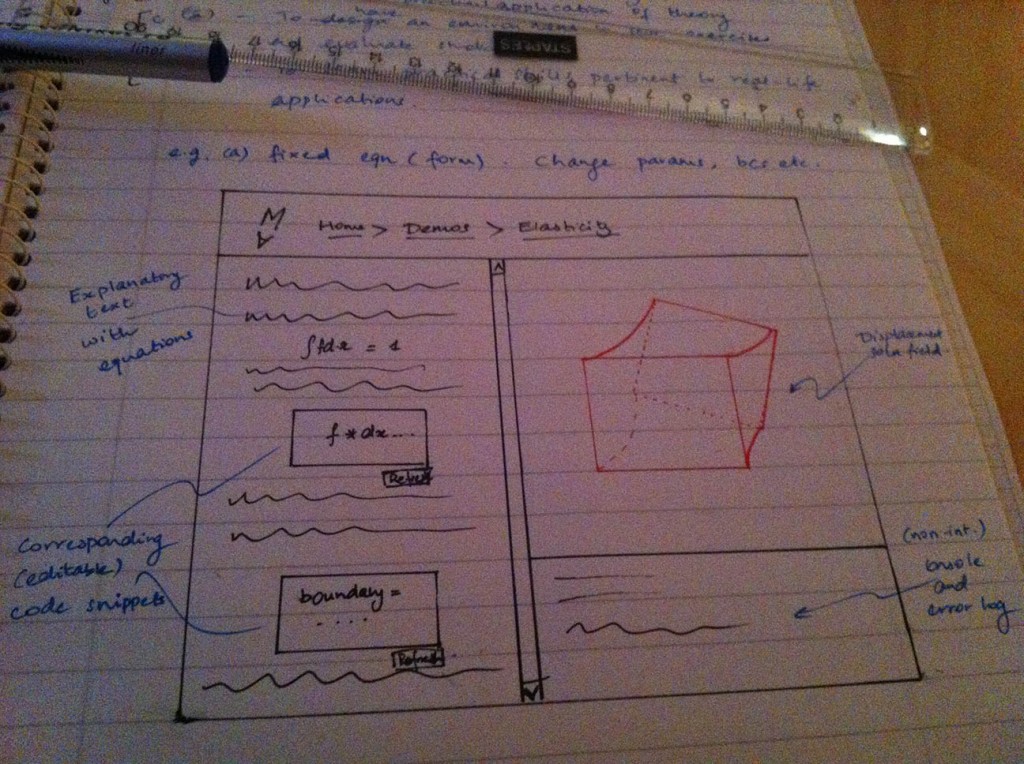 application of theory
(a) - To design an environment
have
exercises
and evaluate
STAPLES
liner
skills pertinent to real-life
applications.
e.g. (a) fixed eqn (form). Change params, bcs etc.
M
A
Home > Demos > Elasticity
Explanatory
text
with
equations
∫fdx = 1
Displacement
soln field.
f * dx ....
Refresh
Corresponding
(editable)
code snippets
(non-int.)
console
and
error log
boundary =
. . . .
Refresh